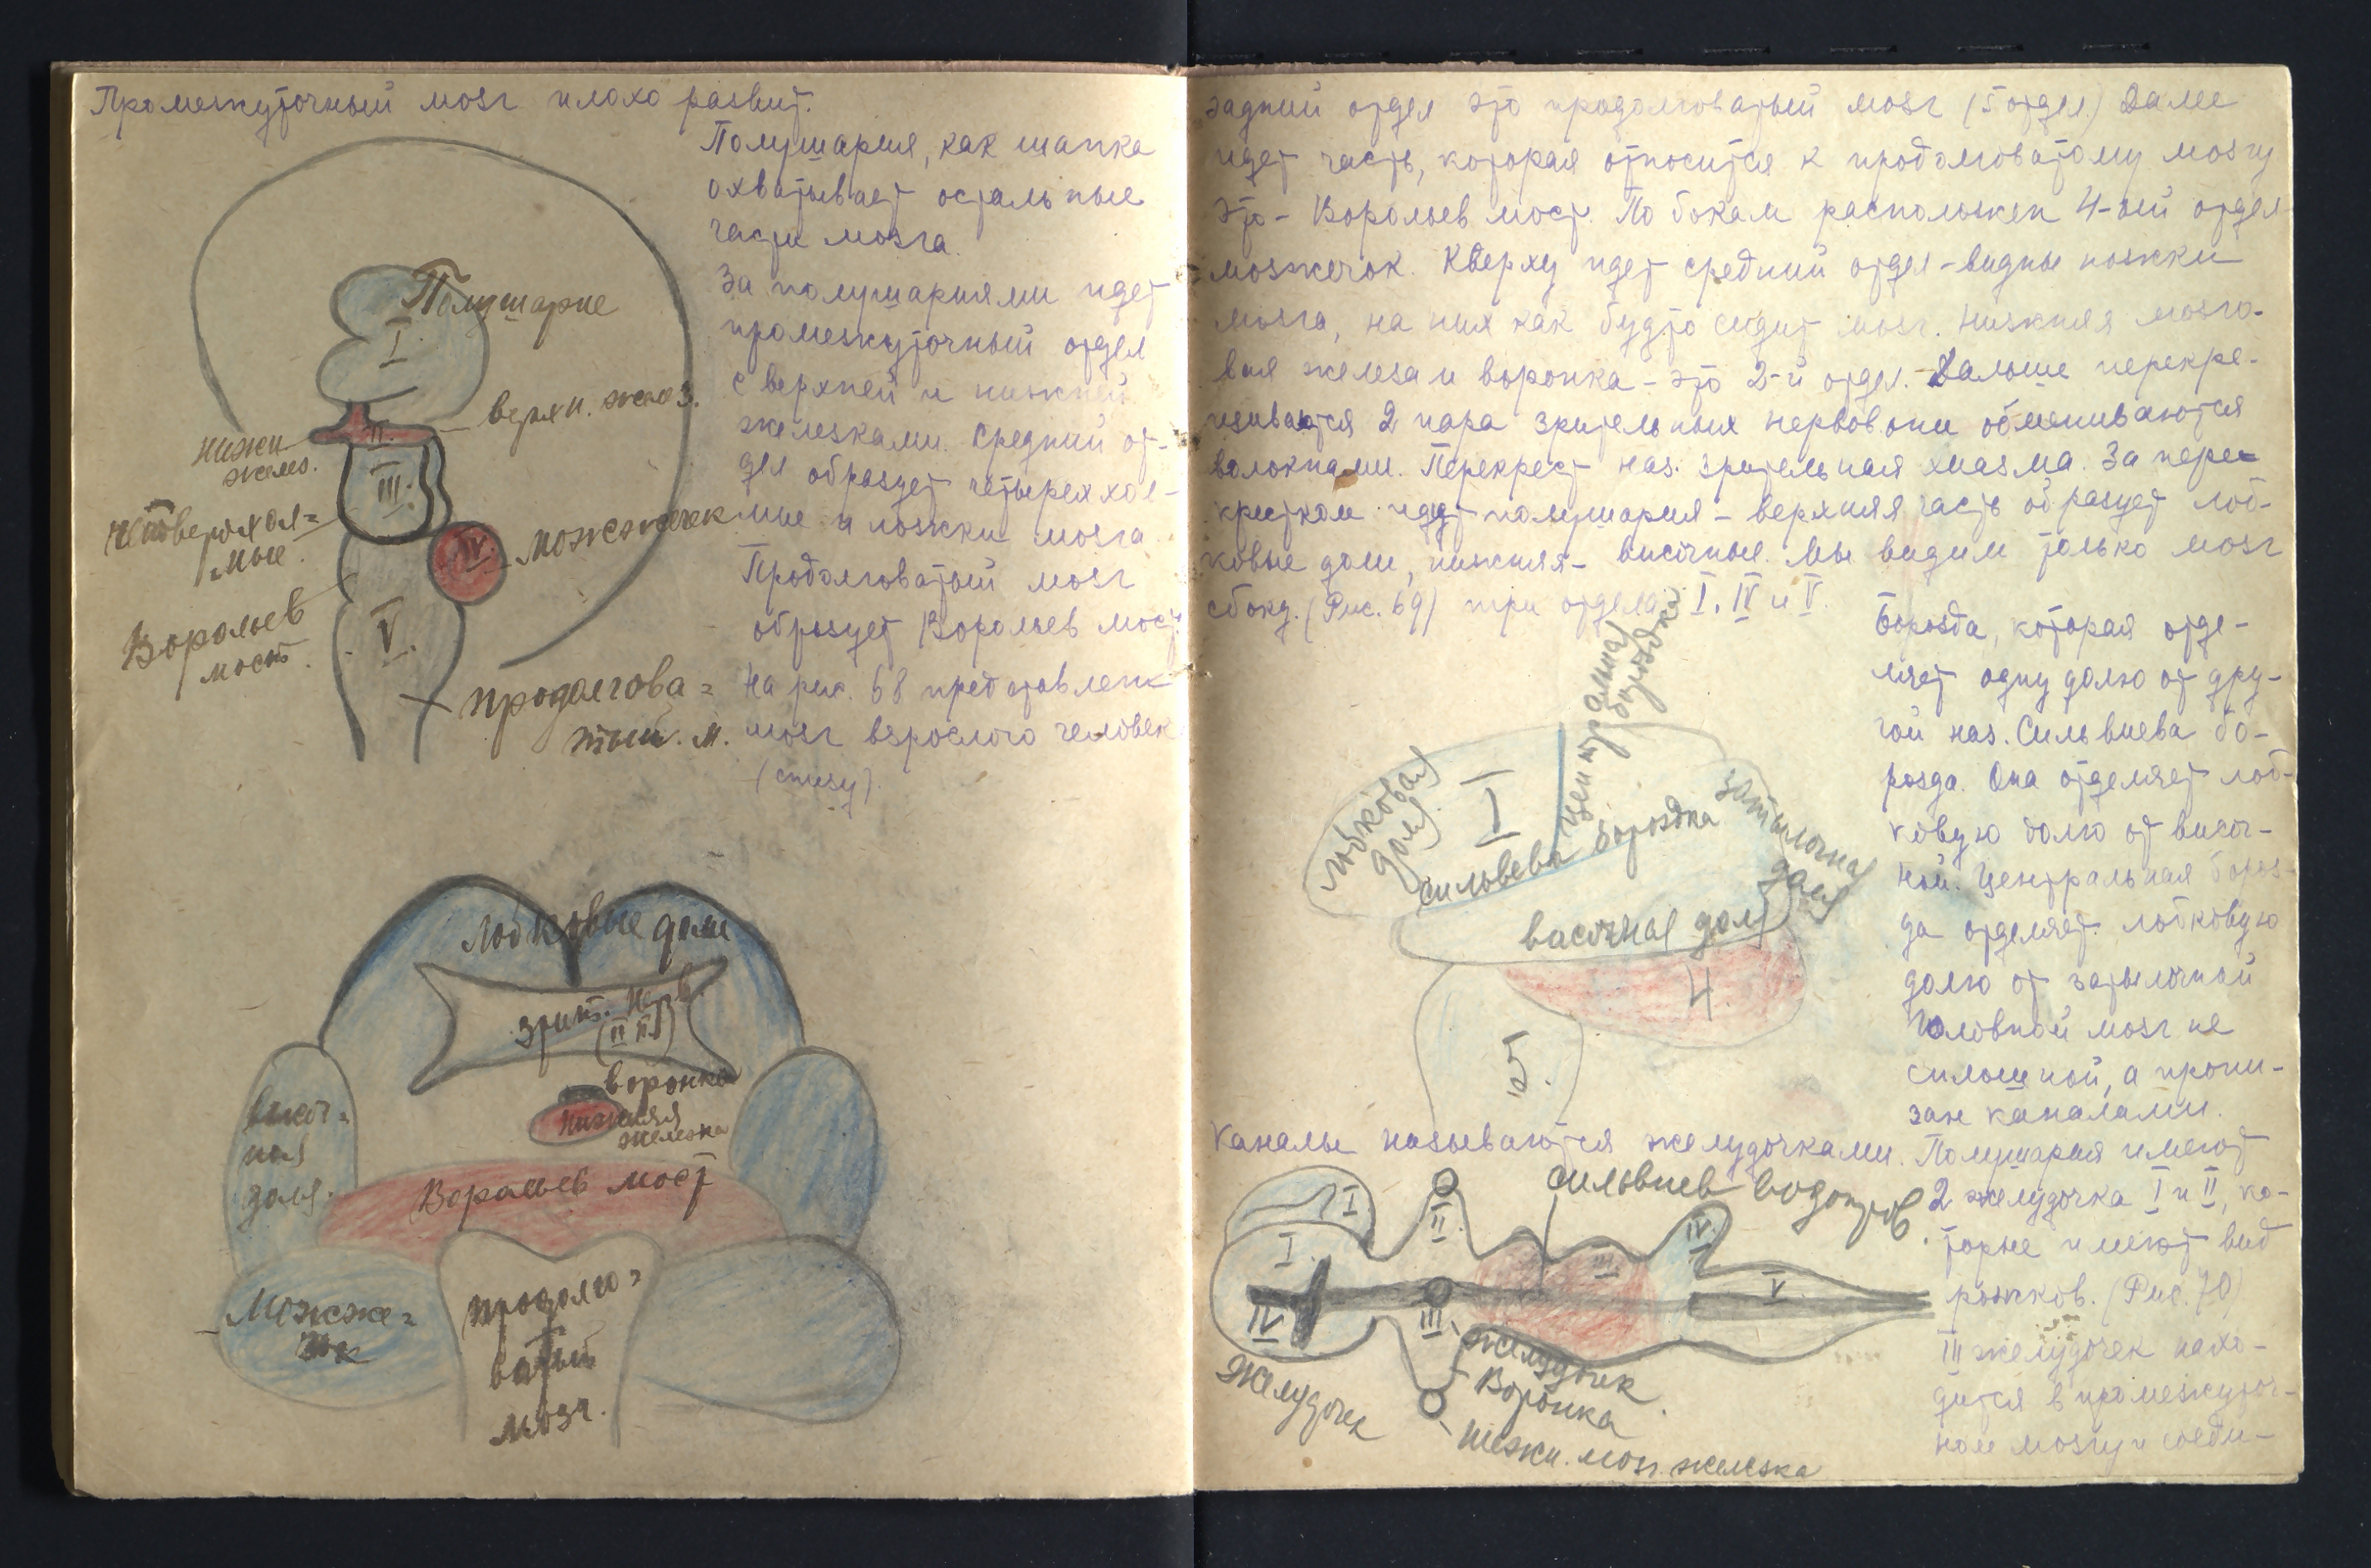 Промежуточный мозг плохо развит.
Полушария, как шапка
охватывает остальные
части мозга.
За полушариями идет
промежуточный отдел
с верхней и нижней
железками. Средний от-
дел образует четыреххол-
мие и ножки мозга
Продолговатый мозг
образует Варольев мост.
На рис. 68 представлен
мозг взрослого человек
(снизу).
Полушарие
I
верхн. желез.
II.
нижн
желез.
III.
холм=
ные.
IV
можжечек
Варольев
мост.
V.
продолгова=
тый. м.
Лобковые доли
зрит. нерв.
(II п.)
воронка
нижняя
железка
височ=
ная
доля.
Варольев мост
Можже=
чок
продолго=
ватый
мозг.
задний отдел это продолговатый мозг (5 отдел.) Далее
идет часть, которая относится к продолговатому мозгу
это - Варольев мост. По бокам расположен 4-ый отдел
мозжечок. Кверху идет средний отдел - видны ножки
мозга, на них как будто сидит мозг. Нижняя мозго-
вая железа и воронка - это 2-й отдел. Дальше перекре-
щиваются 2 пара зрительных нервов. они обмениваются
волокнами. Перекрест наз. зрительная хиазма. За пере-
крестком идут полушария - верхняя часть образует лоб-
ковые доли, нижняя - височные. Мы видим только мозг
сбоку. (Рис. 69) три отдела I, IV и V.
Борозда, которая отде-
ляет одну долю от дру-
гой наз. Сильвиева бо-
розда. Она отделяет лоб-
ковую долю от височ-
ной. Центральная бороз-
да отделяет лобковую
долю от затылочной
Головной мозг не
сплошной, а прони-
зан каналами.
лобковая
доля
I
центральная
бороздка
сильвева бороздка
затылочная
доля
височная доля
4.
5.
Каналы называются желудочками. Полушария имеют
2 желудочка I и II, ко-
торые имеют вид
рожков. (Рис. 70)
III желудочек нахо-
дится в промежуточ-
ном мозгу и соеди-
сильвиев водопров.
I
II
I
III
IV
V
IV
III
желудочек
Воронка
Желудочек
нижн. мозг. железка